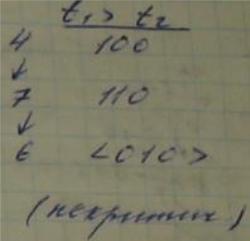 t₁ > t₂
4 100
↓
7 110
↓
6 <010>
(некритич)